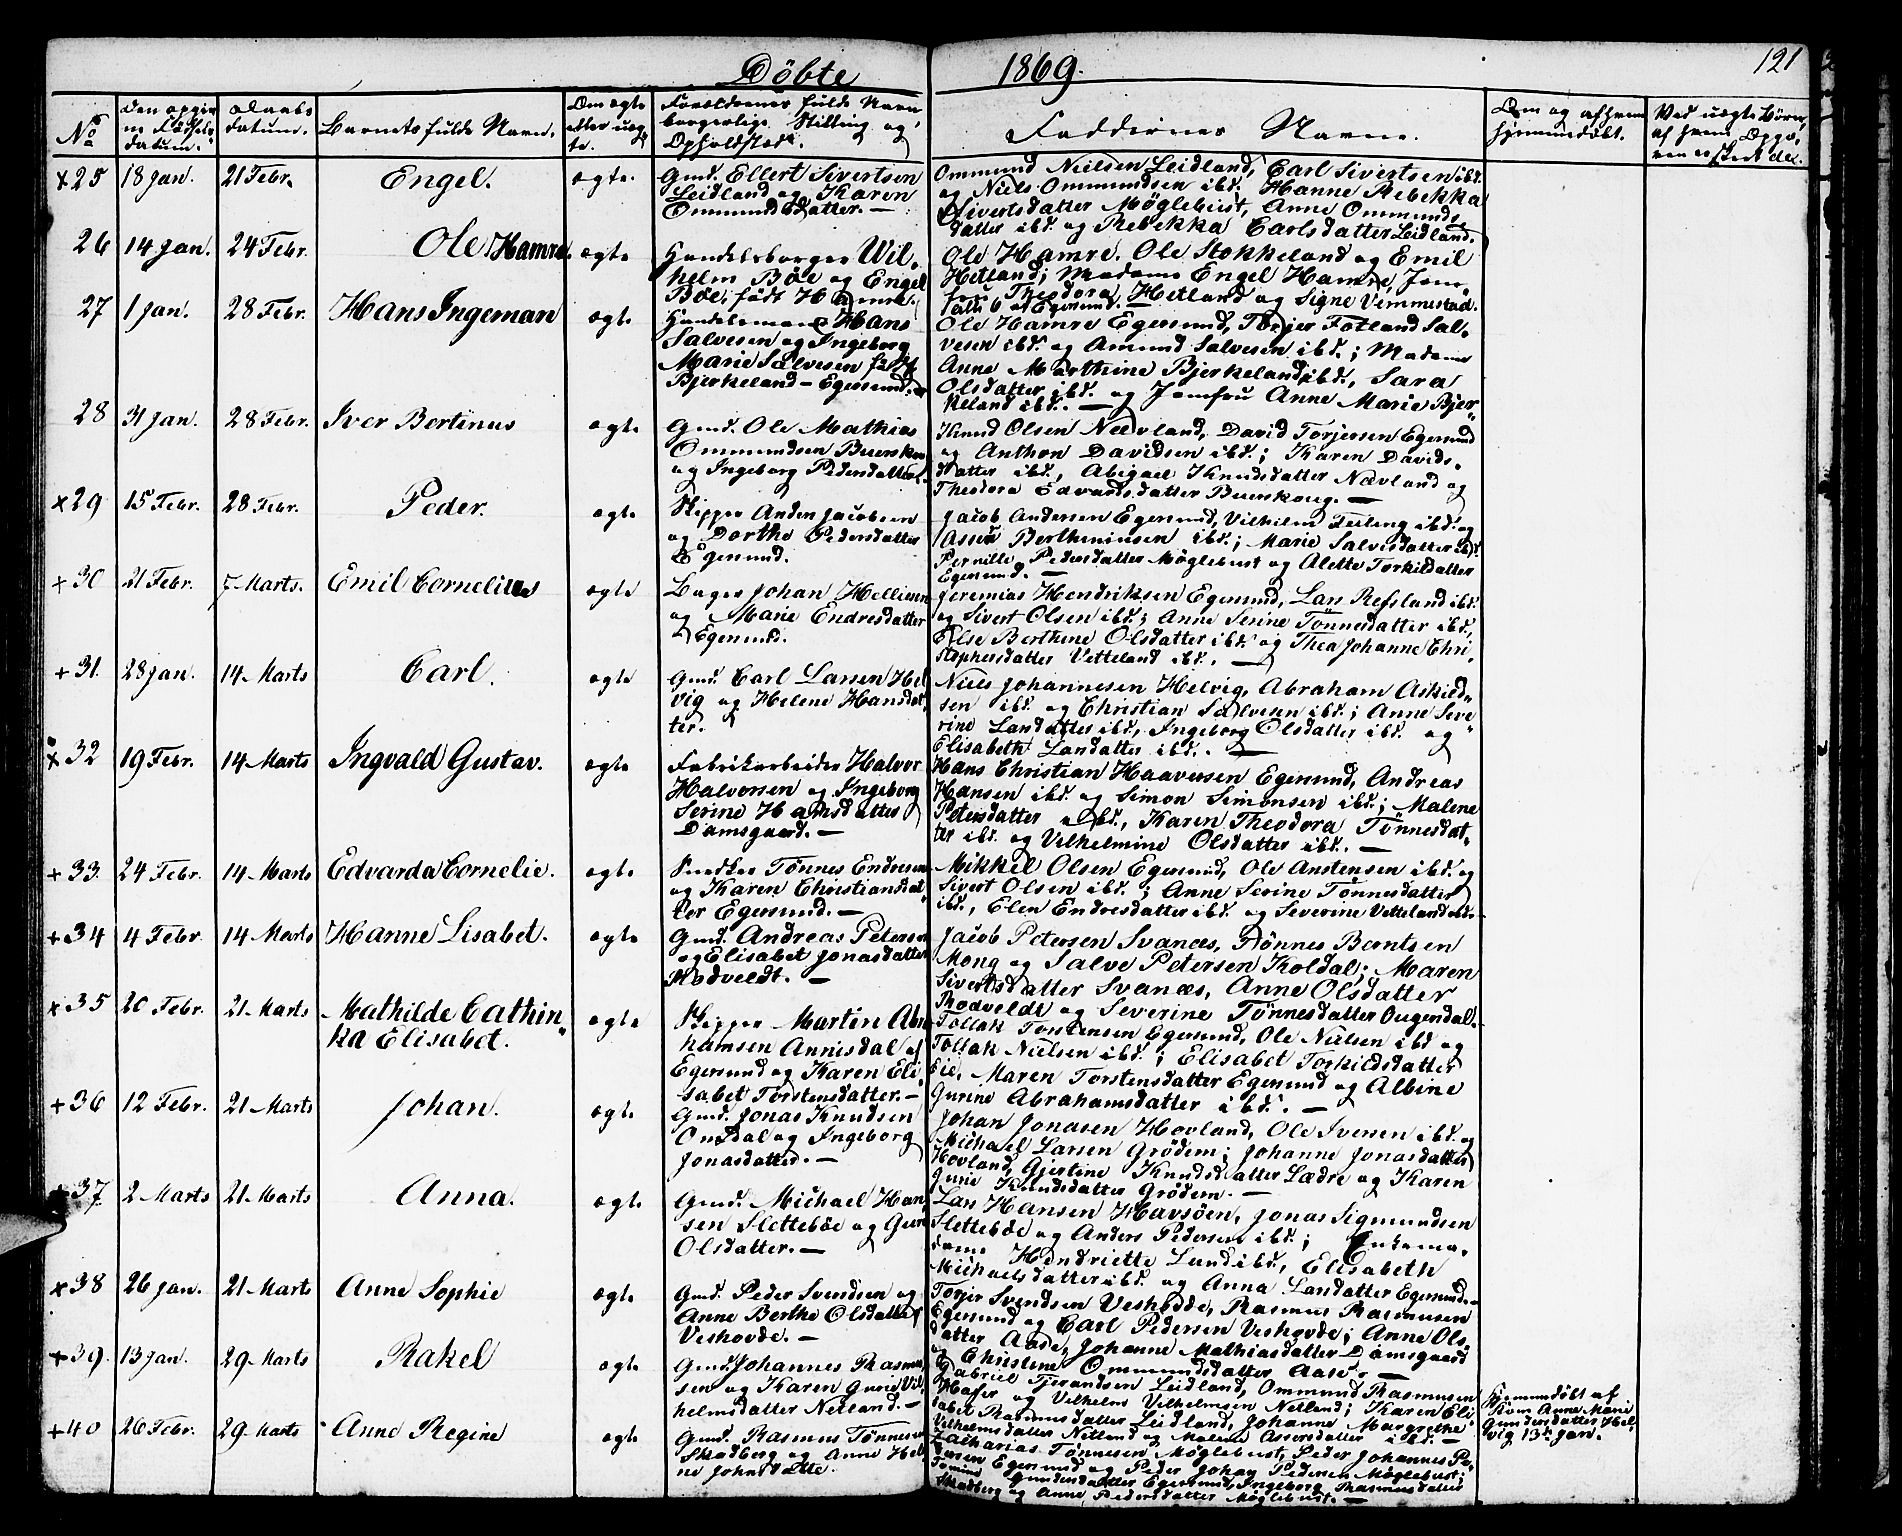 Döbte 1869. 121
No
Den opgiv
ne Födsels
datum.
Daabs
datum.
Barnets fulde Navn.
Om ægte
eller uæg
te.
Forældrenes fulde Navn
borgerlige Stilling og
Opholdssted.
Faddernes Navne.
Om og af hvem
hjemmedöbt.
Ved uægte Börn,
af hvem Opgö,
×25 18 Jan. 21 Febr. Engel. ægte.
Gmd. Ellert Sivertsen
Leidland og Karen
Ommundsdatter. —
Ommund Nielsen Leidland, Carl Sivertsen ibd.
og Niels Ommundsen ibd. Hanne Rebekka
Sivertsdatter Möglebust, Anne Ommunds
datter ibd. og Rebekka Carlsdatter Leidland.
26 14 Jan. 24 Febr. Ole Hamre. ægte
Handelsborger Wil,
helm Böe og Engel
Böe, födt Hamre.
Ole Hamre, Ole Stokkeland og Emil
Hetland; Madame Engel Hamre, Jom,
fru Theodora Hetland og Signe Vemmestad.
alle 6 af Egersund. —
27 1 Jan. 28 Febr. Hans Ingeman ægte
Handelsmand Hans
Salvesen og Ingeborg
Marie Salvesen födt
Bjerkeland – Egersund.
Ole Hamre Egersund, Torjer Fotland Sal,
vesen ibd. og Amund Salvesen ibd.; Madame
Anne Marthine Bjerkeland ibd., Sara
Olsdatter ibd. og Jomfru Anne Marie Bjer
keland ibd. —
28 31 Jan. 28 Febr. Iver Bertinus ægte
Gmd. Ole Mathias
Ommundsen Buerskoug
og Ingeborg Pedersdatter.
Knud Olsen Nævland, David Torjersen Egersund
og Anthon Davidsen ibd.; Karen Davids,
datter ibd., Abigael Knudsdatter Nævland og
Theodora Edvardsdatter Buerskoug. —
×29 15 Febr. 28 Febr. Peder. ægte
Skipper Anders Jacobsen
og Dorthe Pedersdatter
Egersund.
Jacob Andersen Egersund, Vilhelm Feiling ibd. og
Asser Berthiniusen ibd.; Marie Salvisdatter ibd.
Pernille Pedersdatter Möglebust og Alette Torkildsdatter
Egersund. —
+30 21 Febr. 7 Marts. Emil Cornelius ægte
Bager Johan Hellisen
og Marie Endresdatter
Egersund.
Jeremias Hendriksen Egersund, Lars Refsland ibd.
og Sivert Olsen ibd.; Anne Serine Tönnesdatter ibd.,
Else Berthine Olsdatter ibd. og Thea Johanne Chri,
stophersdatter Vetteland ibd. —
+31. 28 Jan. 14 Marts Carl. ægte
Gmd. Carl Larsen Hel
vig og Helene Hansdat,
ter.
Niels Johannesen Helvig, Abraham Askild,
sen ibd. og Christian Salvesen ibd.; Anne Seve
rine Larsdatter ibd., Ingeborg Olsdatter ibd. og
Elisabeth Larsdatter ibd. —
×32 19 Febr. 14 Marts Ingvald Gustav. ægte
Fabrikarbeider Halvor
Halvorsen og Ingeborg
Serine Hansdatter
Damsgaard. —
Hans Christian Haaversen Egersund, Andreas
Hansen ibd. og Simon Simonsen ibd.; Malene
Petersdatter ibd., Karen Theodora Tönnesdat,
ter ibd. og Vilhelmine Olsdatter ibd. —
+33. 24 Febr. 14 Marts Edvarda Cornelie. ægte
Snedker Tönnes Endresen
og Karen Christiansdat
ter Egersund. —
Mikkel Olsen Egersund, Ole Anstensen ibd. og
Sivert Olsen ibd.; Anne Serine Tönnesdatter
ibd., Elen Endresdatter ibd. og Severine Vetteland ibd.
+34 4 Febr. 14 Marts Hanne Lisabet. ægte
Gmd. Andreas Petersen
og Elisabet Jonasdatter
Rodveldt. —
Jacob Petersen Svanæs, Tönnes Berntsen
Mong og Salve Petersen Koldal; Maren
Sivertsdatter Svanæs, Anne Olsdatter
Rodveldt og Severine Tönnesdatter Ougendal.
×35 20 Febr. 21 Marts Mathilde Cathin,
ka Elisabet. ægte
Skipper Martin Abra
hamsen Annisdal af
Egersund og Karen Eli,
sabet Torstensdatter. —
Tollak Torstensen Egersund, Ole Nielsen ibd og
Tollak Nielsen ibd.; Elisabet Torkildsdatter
Eie, Maren Torstensdatter Egersund og Albine
Gurine Abrahamsdatter ibd. —
+36 12 Febr. 21 Marts Johan. ægte
Gmd. Jonas Knudsen
Omdal og Ingeborg
Jonasdatter. —
Johan Jonasen Hovland, Ole Iversen ibd. og
Michael Larsen Grödem; Johanne Jonasdatter
Hovland, Gjertine Knudsdatter Lædre og Karen
Gurie Knudsdatter Grödem. —
+37 2 Marts 21 Marts Anna. ægte
Gmd. Michael Han
sen Sletteböe og Guri
Olsdatter. —
Lars Hansen Havsöen, Jonas Sigmundsen
Sletteböe og Anders Pedersen ibd.; Enkema,
dame Hendriette Lund ibd., Elisabeth
Michaelsdatter ibd. og Anna Larsdatter Egersund. —
×38 26 Jan. 21 Marts Anne Sophie ægte
Gmd. Peder Svendsen og
Anne Berthe Olsdatter
Veshovde. —
Torjer Svendsen Veshovde, Rasmus Rasmusen
Egersund og Carl Pedersen Veshovde; Anne Ols,
datter Aase, Johanne Mathiasdatter Damsgaard
og Christene Ommundsdatter Aase. —
+39. 13 Jan. 29 Marts Rakel ægte
Gmd. Johannes Rasmu
sen og Karen Gurie Vil,
helmsdatter Netland. —
Gabriel Tjerandsen Leidland, Ommund Rasmusen
Hafer og Vilhelm Vilhelmsen Netland; Karen Eli
sabet Rasmusdatter Leidland, Johanne Margrethe
Vilhelmsdatter Netland og Malene Assersdatter ibd. —
Hjemmedöbt af
Anne Marie
Gundersdatter Hel,
vig 13de Jan.
+40 26 Febr. 29 Marts Anne Regine ægte
Gmd. Rasmus Tönnesen
Skadberg og Anne Hel
ne Johnsdatter.
Zacharias Tönnesen Möglebust, Peder Johannes Pe,
dersen Egersund og Peder Johan Pedersen Möglebust;
Gundersdatter Egersund, Ingeborg Rasmusdatter
Skadberg og Anne Pedersdatter Möglebust. —